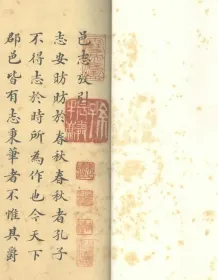 邑志攷引
志安昉昉於春秋春秋者孔子
不得志於時所為作也今天下
郡邑皆有志秉筆者不惟其爵